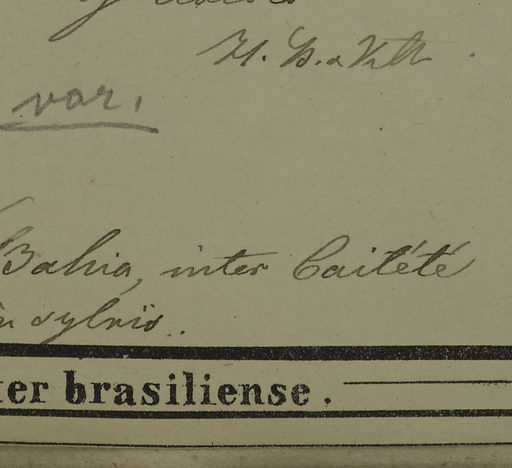 var.
Bahia, inter Caitété
in sylvis.
ter brasiliense.